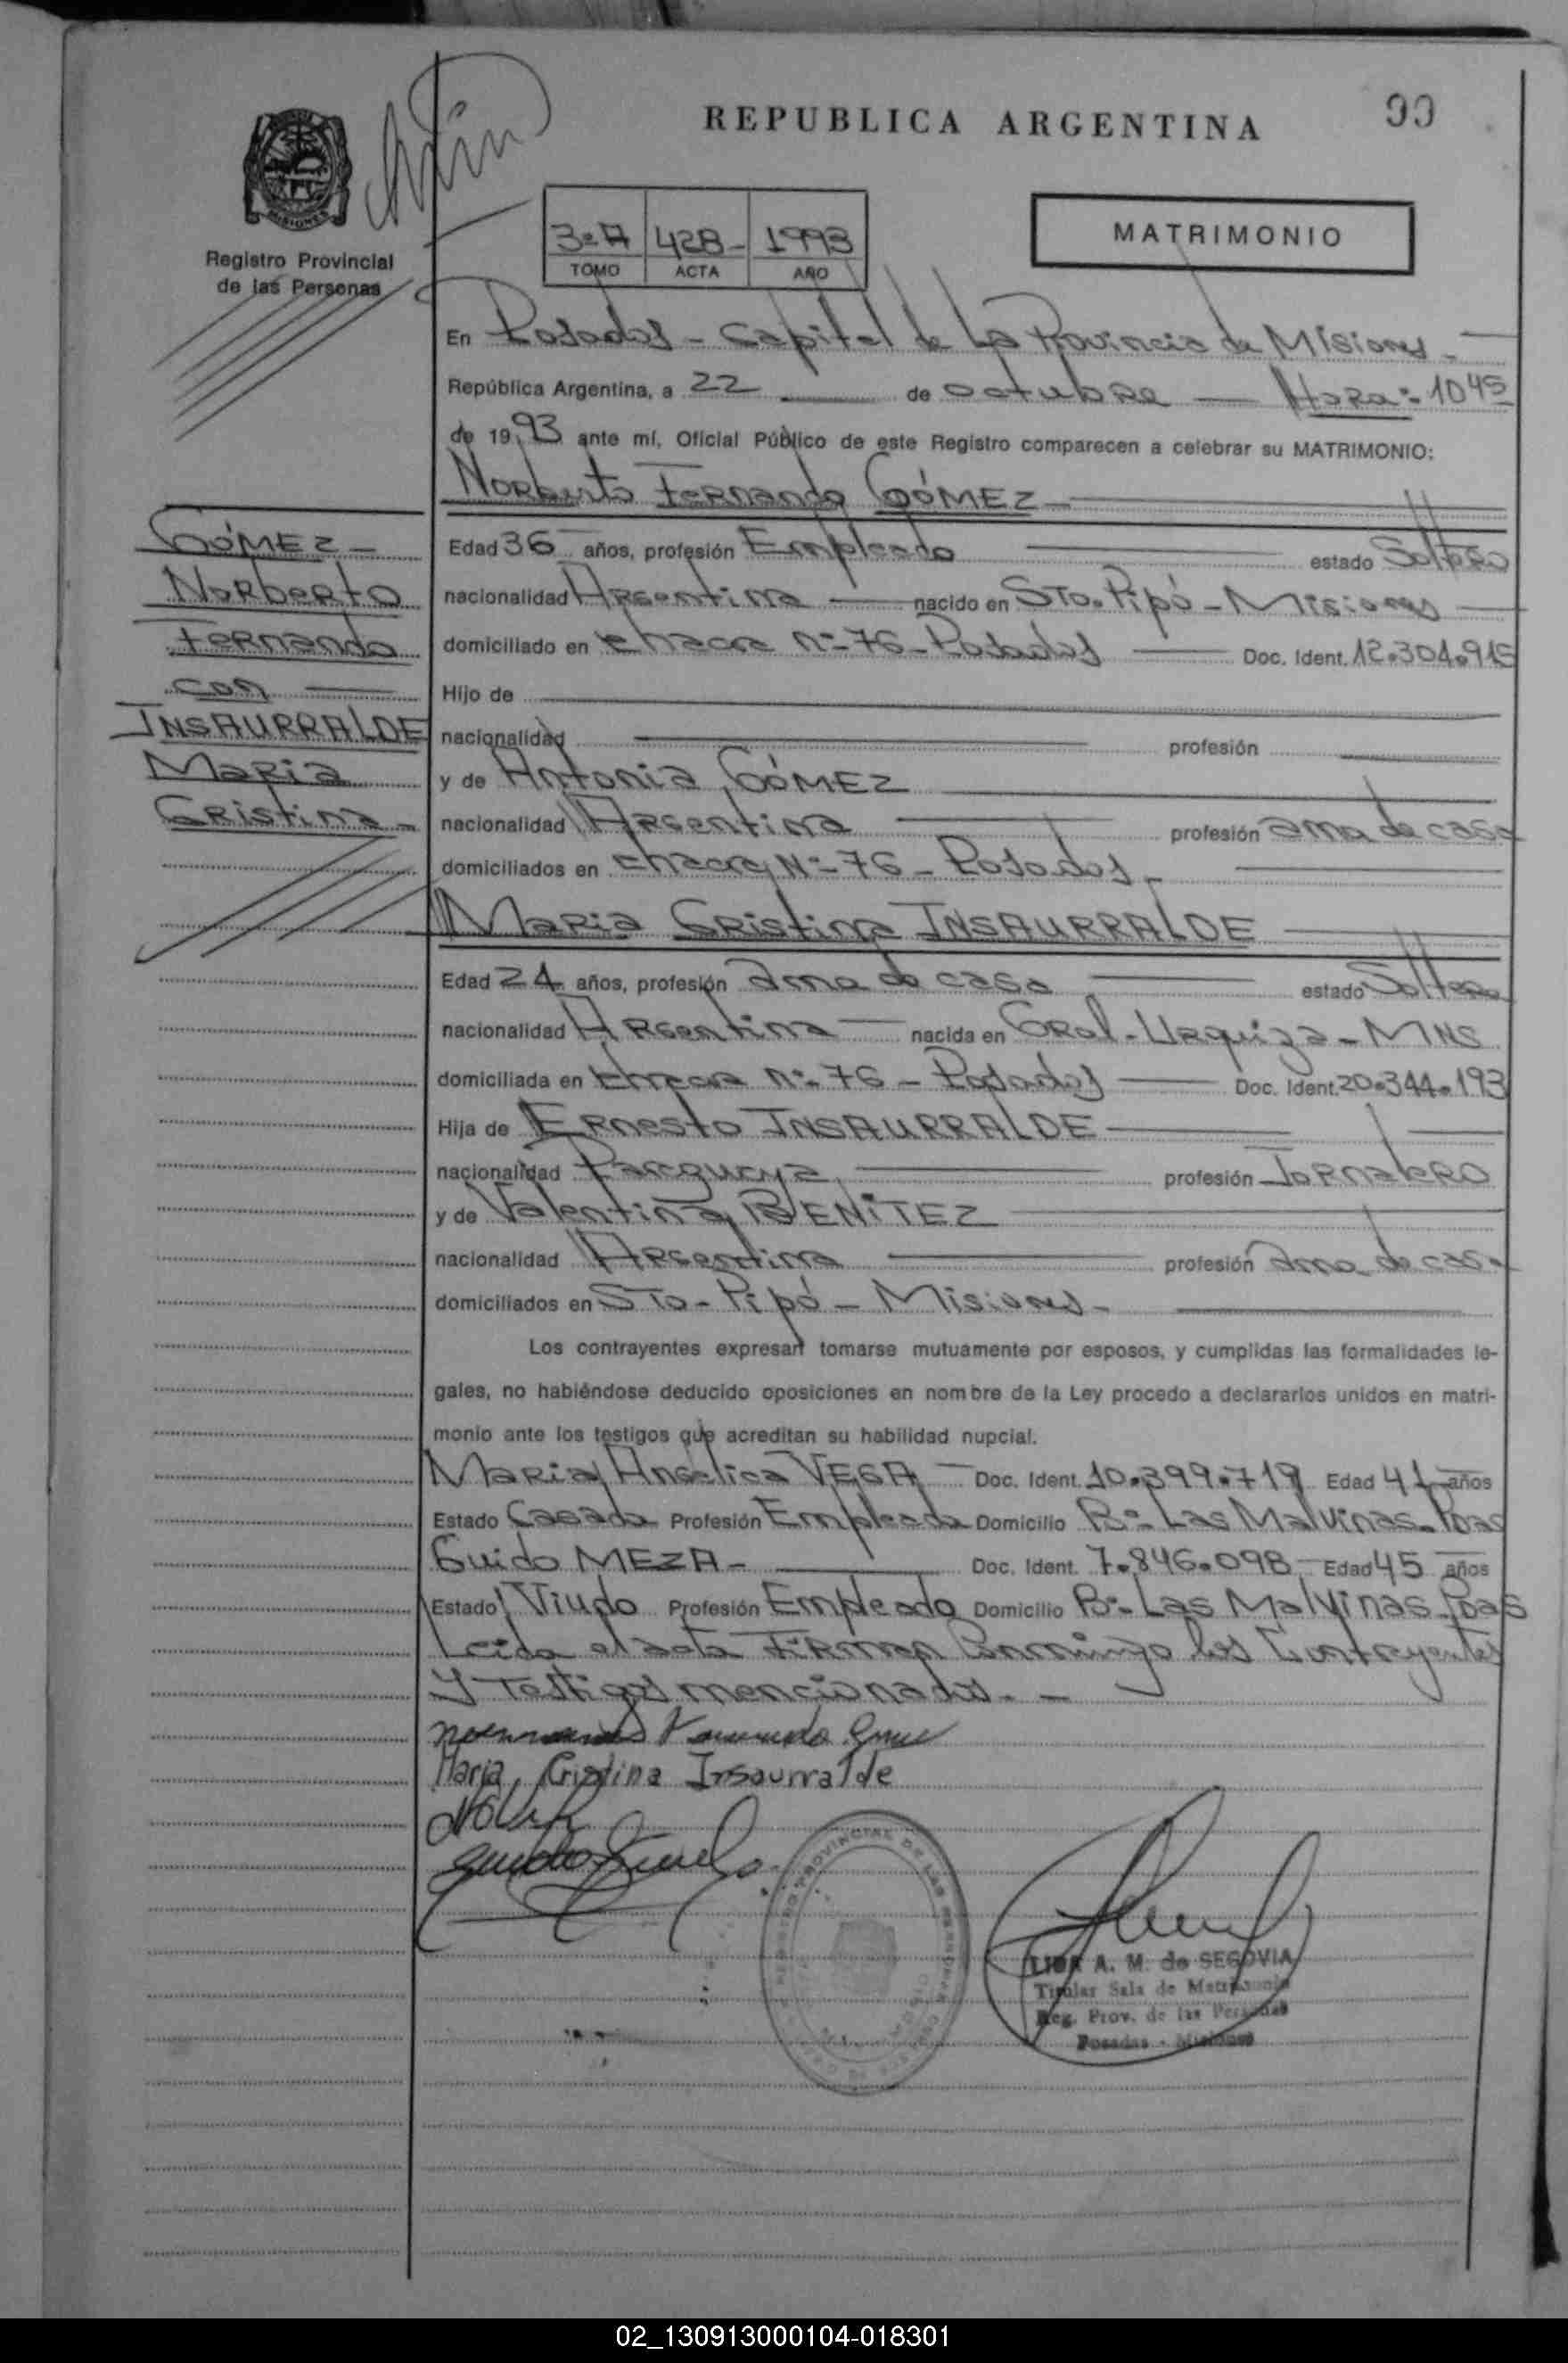 REPUBLICA ARGENTINA
99
MISIONES
Registro Provincial
de las Personas
3º A 428- 1993
TOMO ACTA AÑO
MATRIMONIO
En Posadas - Capital de La Provincia de Misiones -
República Argentina, a 22 de octubre Hora: 10 45
de 19 93 ante mí, Oficial Público de este Registro comparecen a celebrar su MATRIMONIO:
Norberto Fernando GÓMEZ
GÓMEZ -
Norberto
Fernando
con
INSAURRALDE
Maria
Cristina -
Edad 36 años, profesión Empleado estado Soltero
nacionalidad Argentina nacido en Sto. Pipó - Misiones
domiciliado en chacra nº 76 - Posadas Doc. Ident. 12.304.915
Hijo de
nacionalidad profesión
y de Antonia GÓMEZ
nacionalidad Argentina profesión ama de casa
domiciliados en chacra Nº 76 - Posadas -
Maria Cristina INSAURRALDE
Edad 24 años, profesión ama de casa estado Soltera
nacionalidad Argentina nacida en Gral. Urquiza - MNS
domiciliada en chacra nº 76 - Posadas Doc. Ident. 20.344.193
Hija de Ernesto INSAURRALDE
nacionalidad Paraguaya profesión Jornalero
y de Valentina BENITEZ
nacionalidad Argentina profesión ama de casa
domiciliados en Sto. Pipó - Misiones -
Los contrayentes expresan tomarse mutuamente por esposos, y cumplidas las formalidades le-
gales, no habiéndose deducido oposiciones en nombre de la Ley procedo a declararlos unidos en matri-
monio ante los testigos que acreditan su habilidad nupcial.
Maria Angelica VEGA Doc. Ident. 10.399.719 Edad 41 años
Estado Casada Profesión Empleada Domicilio Bº Las Malvinas - Pdas
Guido MEZA - Doc. Ident. 7.846.098 Edad 45 años
Estado Viudo Profesión Empleado Domicilio Bº Las Malvinas - Pdas
Leida el acta Firman Conmigo los Contrayentes
Y Testigos mencionados. -
Maria Cristina Insaurralde
REGISTRO PROVINCIAL DE LAS PERSONAS
A. M. de SEGOVIA
Titular Sala de Matrimonio
Reg. Prov. de las Personas
Posadas - Misiones
02_130913000104-018301